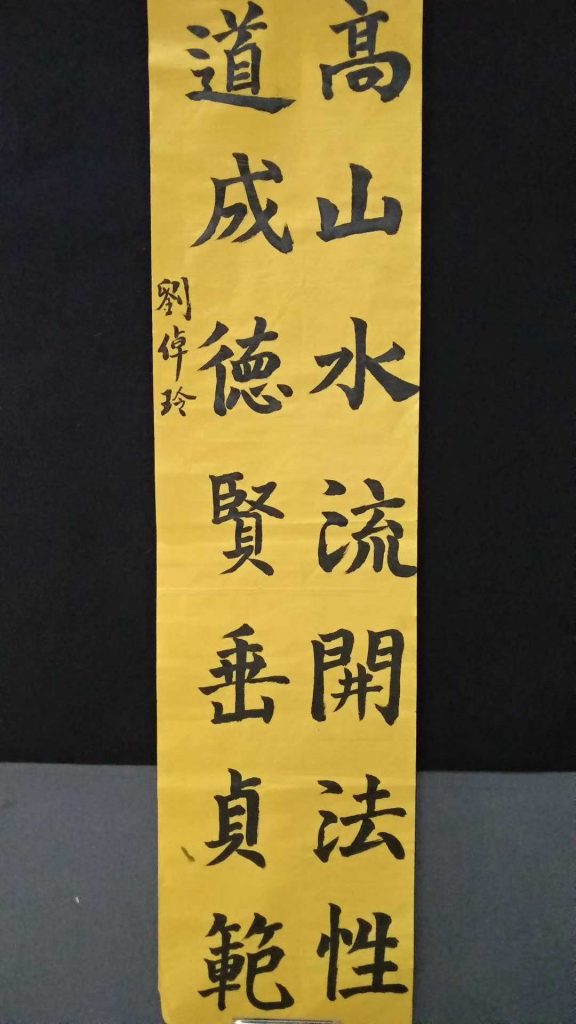 高山水流開法性
道成德賢垂貞範
劉倬玲